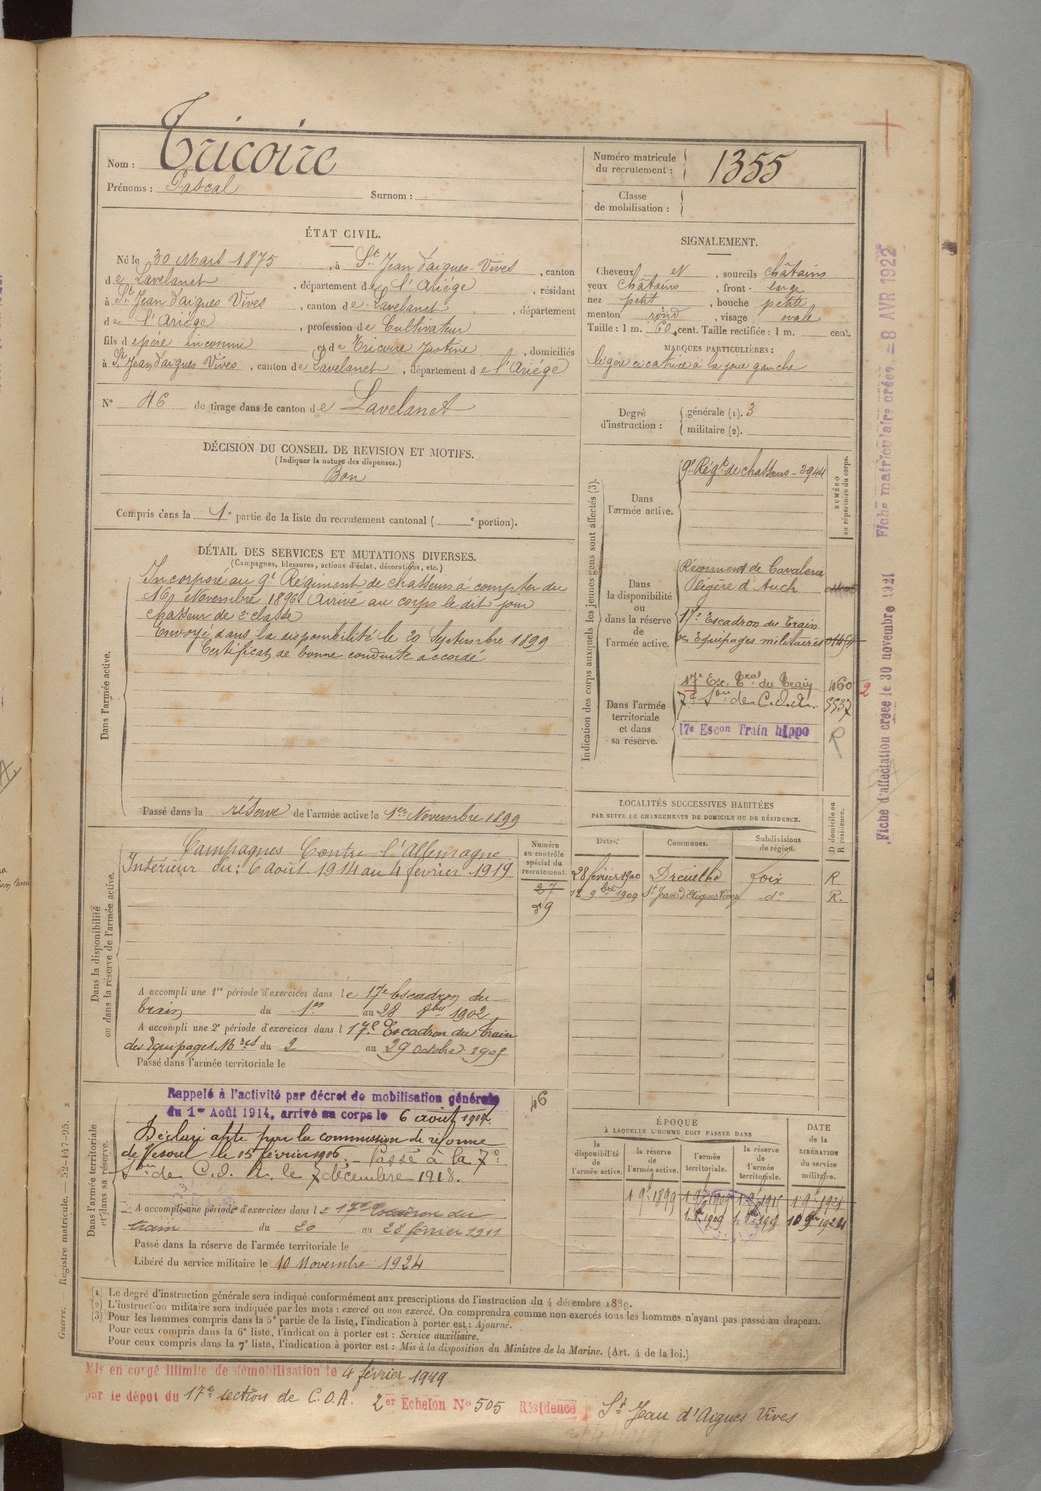 Nom : Tricoire
Prénoms : Pascal Surnom :
Numéro matricule du recrutement : 1355
Classe de mobilisation :
ÉTAT CIVIL.
Né le 30 Mars 1875, à St Jean d'aigues-Vives, canton
de Lavelanet, département de l'Ariége, résidant
à St Jean d'aigues Vives, canton de Lavelanet, département
de l'Ariége, profession de Cultivateur
fils de père inconnu et de Tricoire Justine, domiciliés
à St Jean d'aigues Vives, canton de Lavelanet, département de l'Ariége
N° 46 de tirage dans le canton de Lavelanet
SIGNALEMENT.
Cheveux N, sourcils châtains
yeux châtains, front large
nez petit, bouche petite
menton rond, visage ovale
Taille : 1 m. 60 cent. Taille rectifiée : 1 m. cent.
MARQUES PARTICULIÈRES :
légère cicatrice à la joue gauche
Degré d'instruction : générale (1). 3
militaire (2).
DÉCISION DU CONSEIL DE REVISION ET MOTIFS.
(Indiquer la nature des dispenses.)
Bon
Compris dans la 1e partie de la liste du recrutement cantonal ( e portion).
DÉTAIL DES SERVICES ET MUTATIONS DIVERSES.
(Campagnes, blessures, actions d'éclat, décorations, etc.)
Dans l'armée active.
Incorporé au 9e Régiment de chasseurs à compter du
16 Novembre 1896. Arrivé au corps le dit jour
chasseur de 2e classe
Envoyé dans la disponibilité le 20 Septembre 1899
Certificat de bonne conduite accordé
Passé dans la réserve de l'armée active le 1er Novembre 1899
Indication des corps auxquels les jeunes gens sont affectés (3).
NUMÉRO au répertoire du corps.
Dans l'armée active.
9e Régt de chasseurs - 3944
Dans la disponibilité ou dans la réserve de l'armée active.
Régiment de Cavalerie
légère d'Auch
17e Escadron du Train
des équipages militaires 01454
Dans l'armée territoriale et dans sa réserve.
17e Esc. Tral du Train 460
7e Son de C.O.A. 5537
17e Escon Train hippo R
2
LOCALITÉS SUCCESSIVES HABITÉES
PAR SUITE DE CHANGEMENTS DE DOMICILE OU DE RÉSIDENCE.
Dates. Communes. Subdivisions de région. D domicile ou R résidence.
28 février 1900 Dreuilhe Foix R.
12 9bre 1909 St Jean d'Aigues Vives do R.
Dans la disponibilité ou dans la réserve de l'armée active.
Campagnes Contre l'Allemagne
Intérieur du : 6 Août 1914 au 4 février 1919
Numéro au contrôle spécial du recrutement
27
29
A accompli une 1re période d'exercices dans le 17e Escadron du
train du 1er au 28 8bre 1902
A accompli une 2e période d'exercices dans l 17e Escadron du Train
des Equipages Mres du 2 au 29 octobre 1905
Passé dans l'armée territoriale le
Dans l'armée territoriale et dans sa réserve.
46
Rappelé à l'activité par décret de mobilisation générale
du 1er Août 1914, arrivé au corps le 6 août 1914
Déclaré apte par la commission de réforme
de Vesoul le 15 février 1916. Passé à la 7e
Son de C.O.A. le 7 décembre 1918.
A accompli une période d'exercices dans le 17e Escadron du
train du 20 au 28 février 1911
Passé dans la réserve de l'armée territoriale le
Libéré du service militaire le 10 Novembre 1924
ÉPOQUE
À LAQUELLE L'HOMME DOIT PASSER DANS
la disponibilité de l'armée active. la réserve de l'armée active. l'armée territoriale. la réserve de l'armée territoriale.
DATE de la LIBÉRATION du service militaire.
1 9bre 1899 1 9bre 1909 1 9bre 1915 1 9bre 1921
10 9bre 1924
(1) Le degré d'instruction générale sera indiqué conformément aux prescriptions de l'instruction du 4 décembre 1889.
(2) L'instruction militaire sera indiquée par les mots : exercé ou non exercé. On comprendra comme non exercés tous les hommes n'ayant pas passé au drapeau.
(3) Pour les hommes compris dans la 5e partie de la liste, l'indication à porter est : Ajourné.
Pour ceux compris dans la 6e liste, l'indication à porter est : Service auxiliaire.
Pour ceux compris dans la 7e liste, l'indication à porter est : Mis à la disposition du Ministre de la Marine. (Art. 4 de la loi.)
Mis en congé illimité de démobilisation le 4 février 1919
par le dépot du 17e section de C.O.A. 2er Echelon N° 505 Résidence St Jean d'Aigues Vives
Guerre. — Registre matricule. — 52-147-95.
Fiche d'affectation créée le 30 novembre 1921
Fiche matriculaire créée - 8 AVR 1922